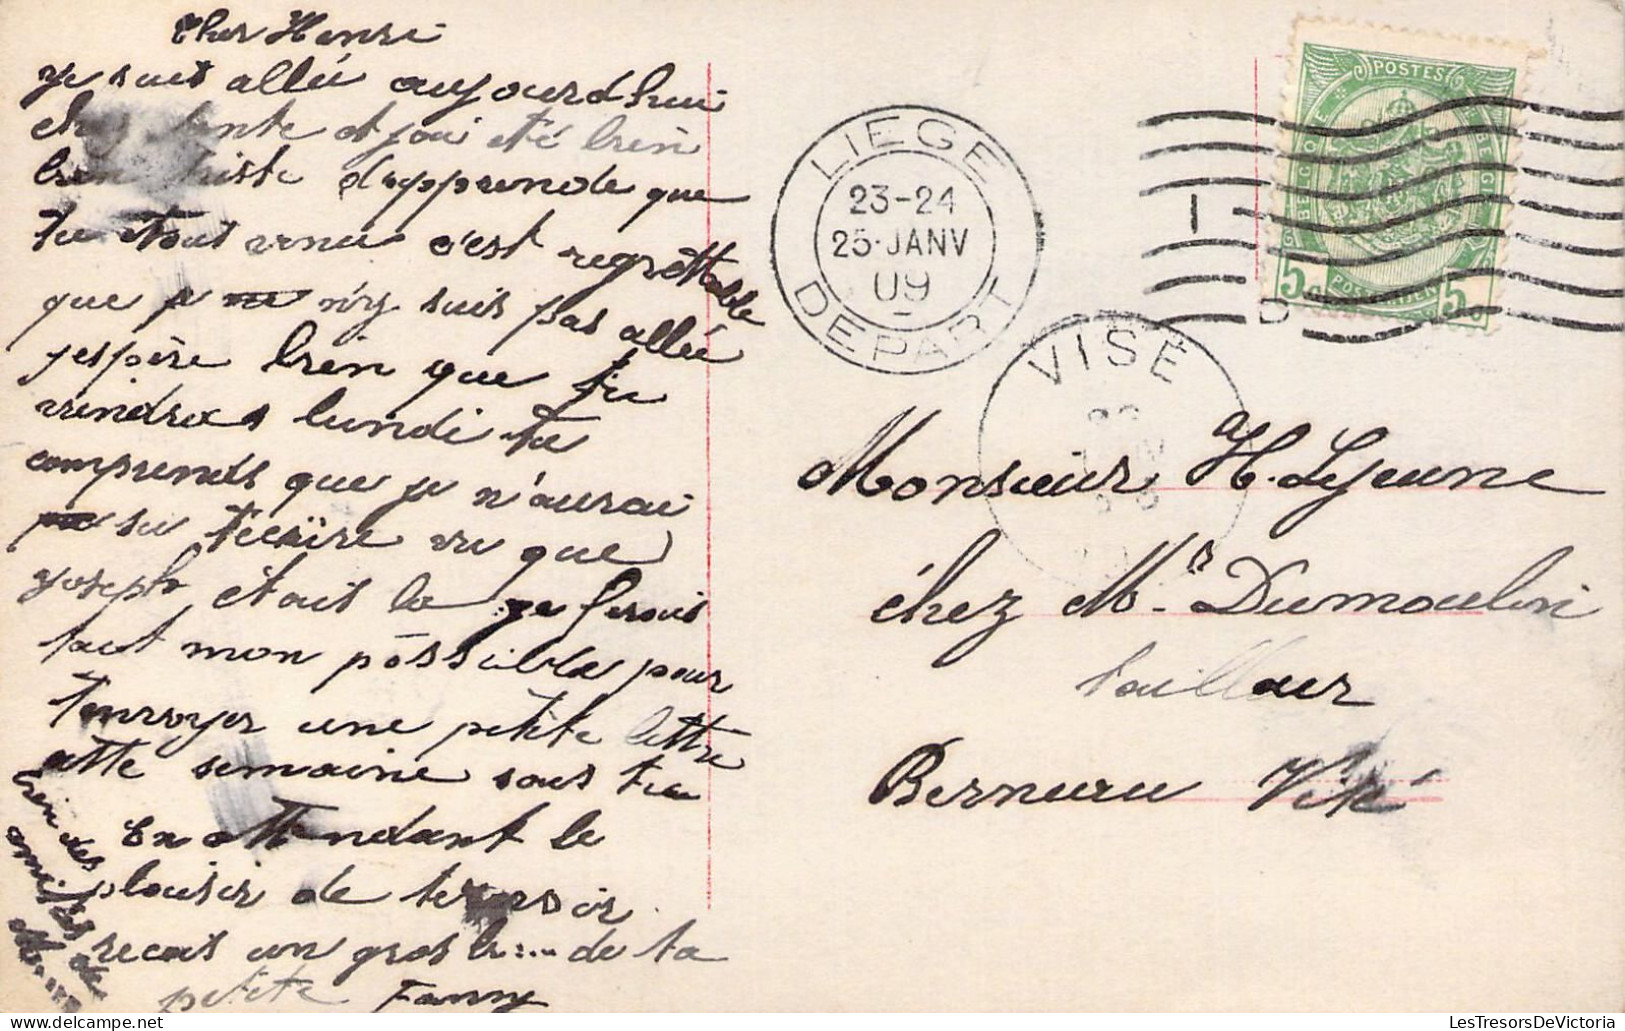 Cher Henri
Je suis allée aujourd'hui
chez tante et j'ai été bien
bien triste d'apprende que
tu étout venu c'est regrettable
que je ne n'y suis pas allée
j'espère bien que tu
viendras lundi tu
comprends que je n'aurai
su t'écrire vu que
Joseph était la je ferais
tout mon possible pour
t'envoyer une petite lettre
cette semaine sous tu
En attendant le
plaisir de te revoir
recois un gros b.... de ta
petite Fanny
bien des
amitiés de
M....
LIEGE
23-24
25·JANV
09
DEPART
VISÉ
POSTES
BELGIQUE
BELGIE
POSTERIJEN
5c
5c
1
D
Monsieur H. Lejeune
chez Mr Dumoulin
tailleur
Berneau Visé
LesTresorsDeVictoria